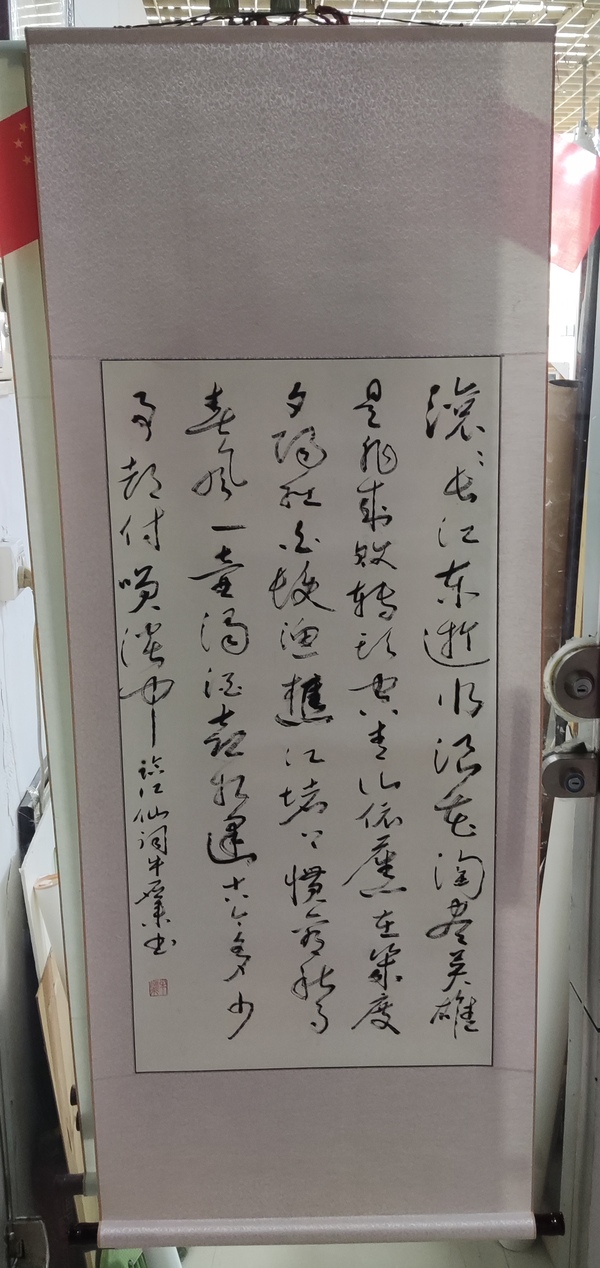 滚滚长江东逝水浪花淘尽英雄
是非成败转头空青山依舊在几度
夕阳红白发渔樵江渚上惯看秋月
春风一壶浊酒喜相逢古今多少
事都付笑谈中临江仙词牛书